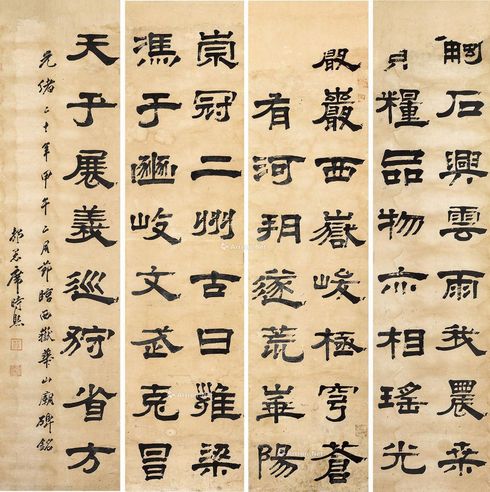 觸石興雲雨我農桑
糧品物亦相瑤光
嚴巖西嶽峻極穹蒼
有河朔遂荒崋陽
崇冠二州古曰雍梁
馮于豳岐文武克昌
天子展義巡狩省方
光緒二十年甲午二月節臨西嶽華山廟碑銘